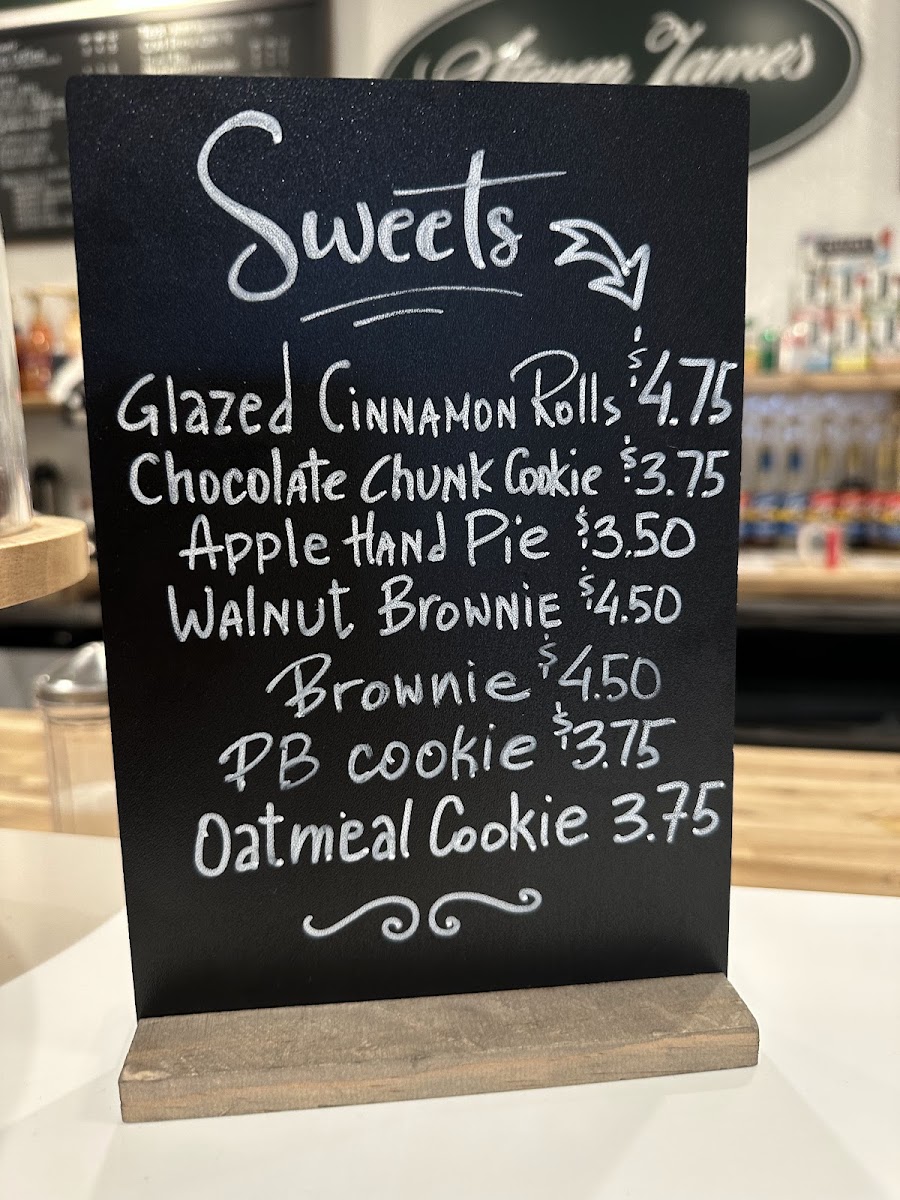 James
Sweets
Glazed Cinnamon Rolls $4.75
Chocolate Chunk Cookie $3.75
Apple Hand Pie $3.50
Walnut Brownie $4.50
Brownie $4.50
PB cookie $3.75
Oatmeal Cookie 3.75